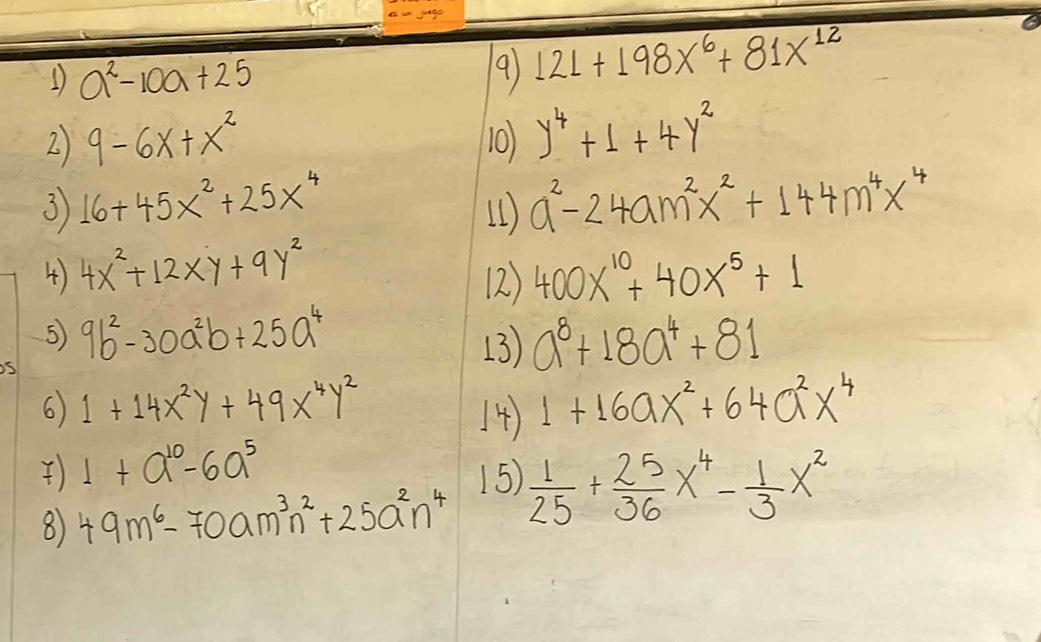 es un juego
1) a² - 10a + 25
2) 9 - 6x + x²
3) 16 + 45x² + 25x⁴
4) 4x² + 12xy + 9y²
5) 9b² - 30a²b + 25a⁴
6) 1 + 14x²y + 49x⁴y²
7) 1 + a¹⁰ - 6a⁵
8) 49m⁶ - 70am³n² + 25a²n⁴
9) 121 + 198x⁶ + 81x¹²
10) y⁴ + 1 + 4y²
11) a² - 24am²x² + 144m⁴x⁴
12) 400x¹⁰ + 40x⁵ + 1
13) a⁸ + 18a⁴ + 81
14) 1 + 16ax² + 64a²x⁴
15) 1/25 + 25/36 x⁴ - 1/3 x²